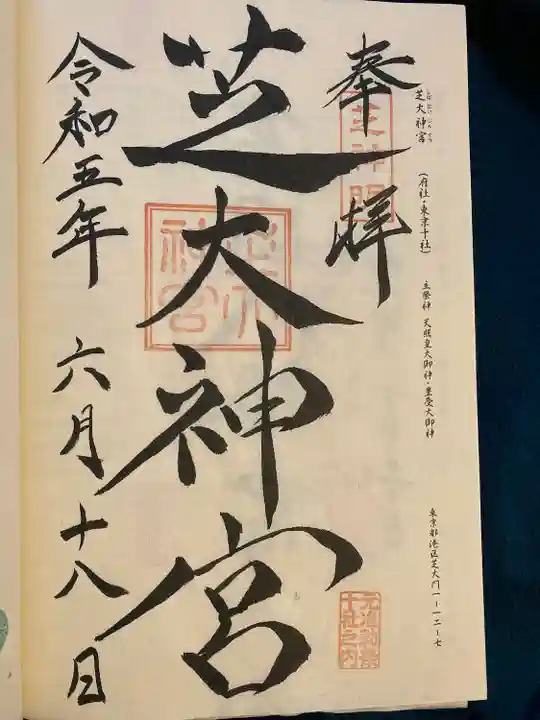 芝大神宮
しばだいじんぐう
(府社・東京十社)
主祭神 天照皇大御神・豊受大御神
東京都港区芝大門一ー一二ー七
奉拝
芝神明
芝大神宮
芝大神宮
元准勅祭
十社之内
令和五年 六月十八日